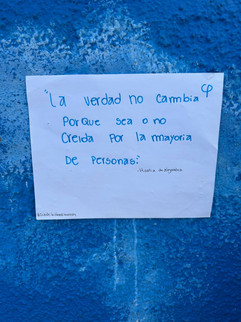 "La verdad no cambia φ
Porque sea o no
Creida por la mayoria
De Personas."